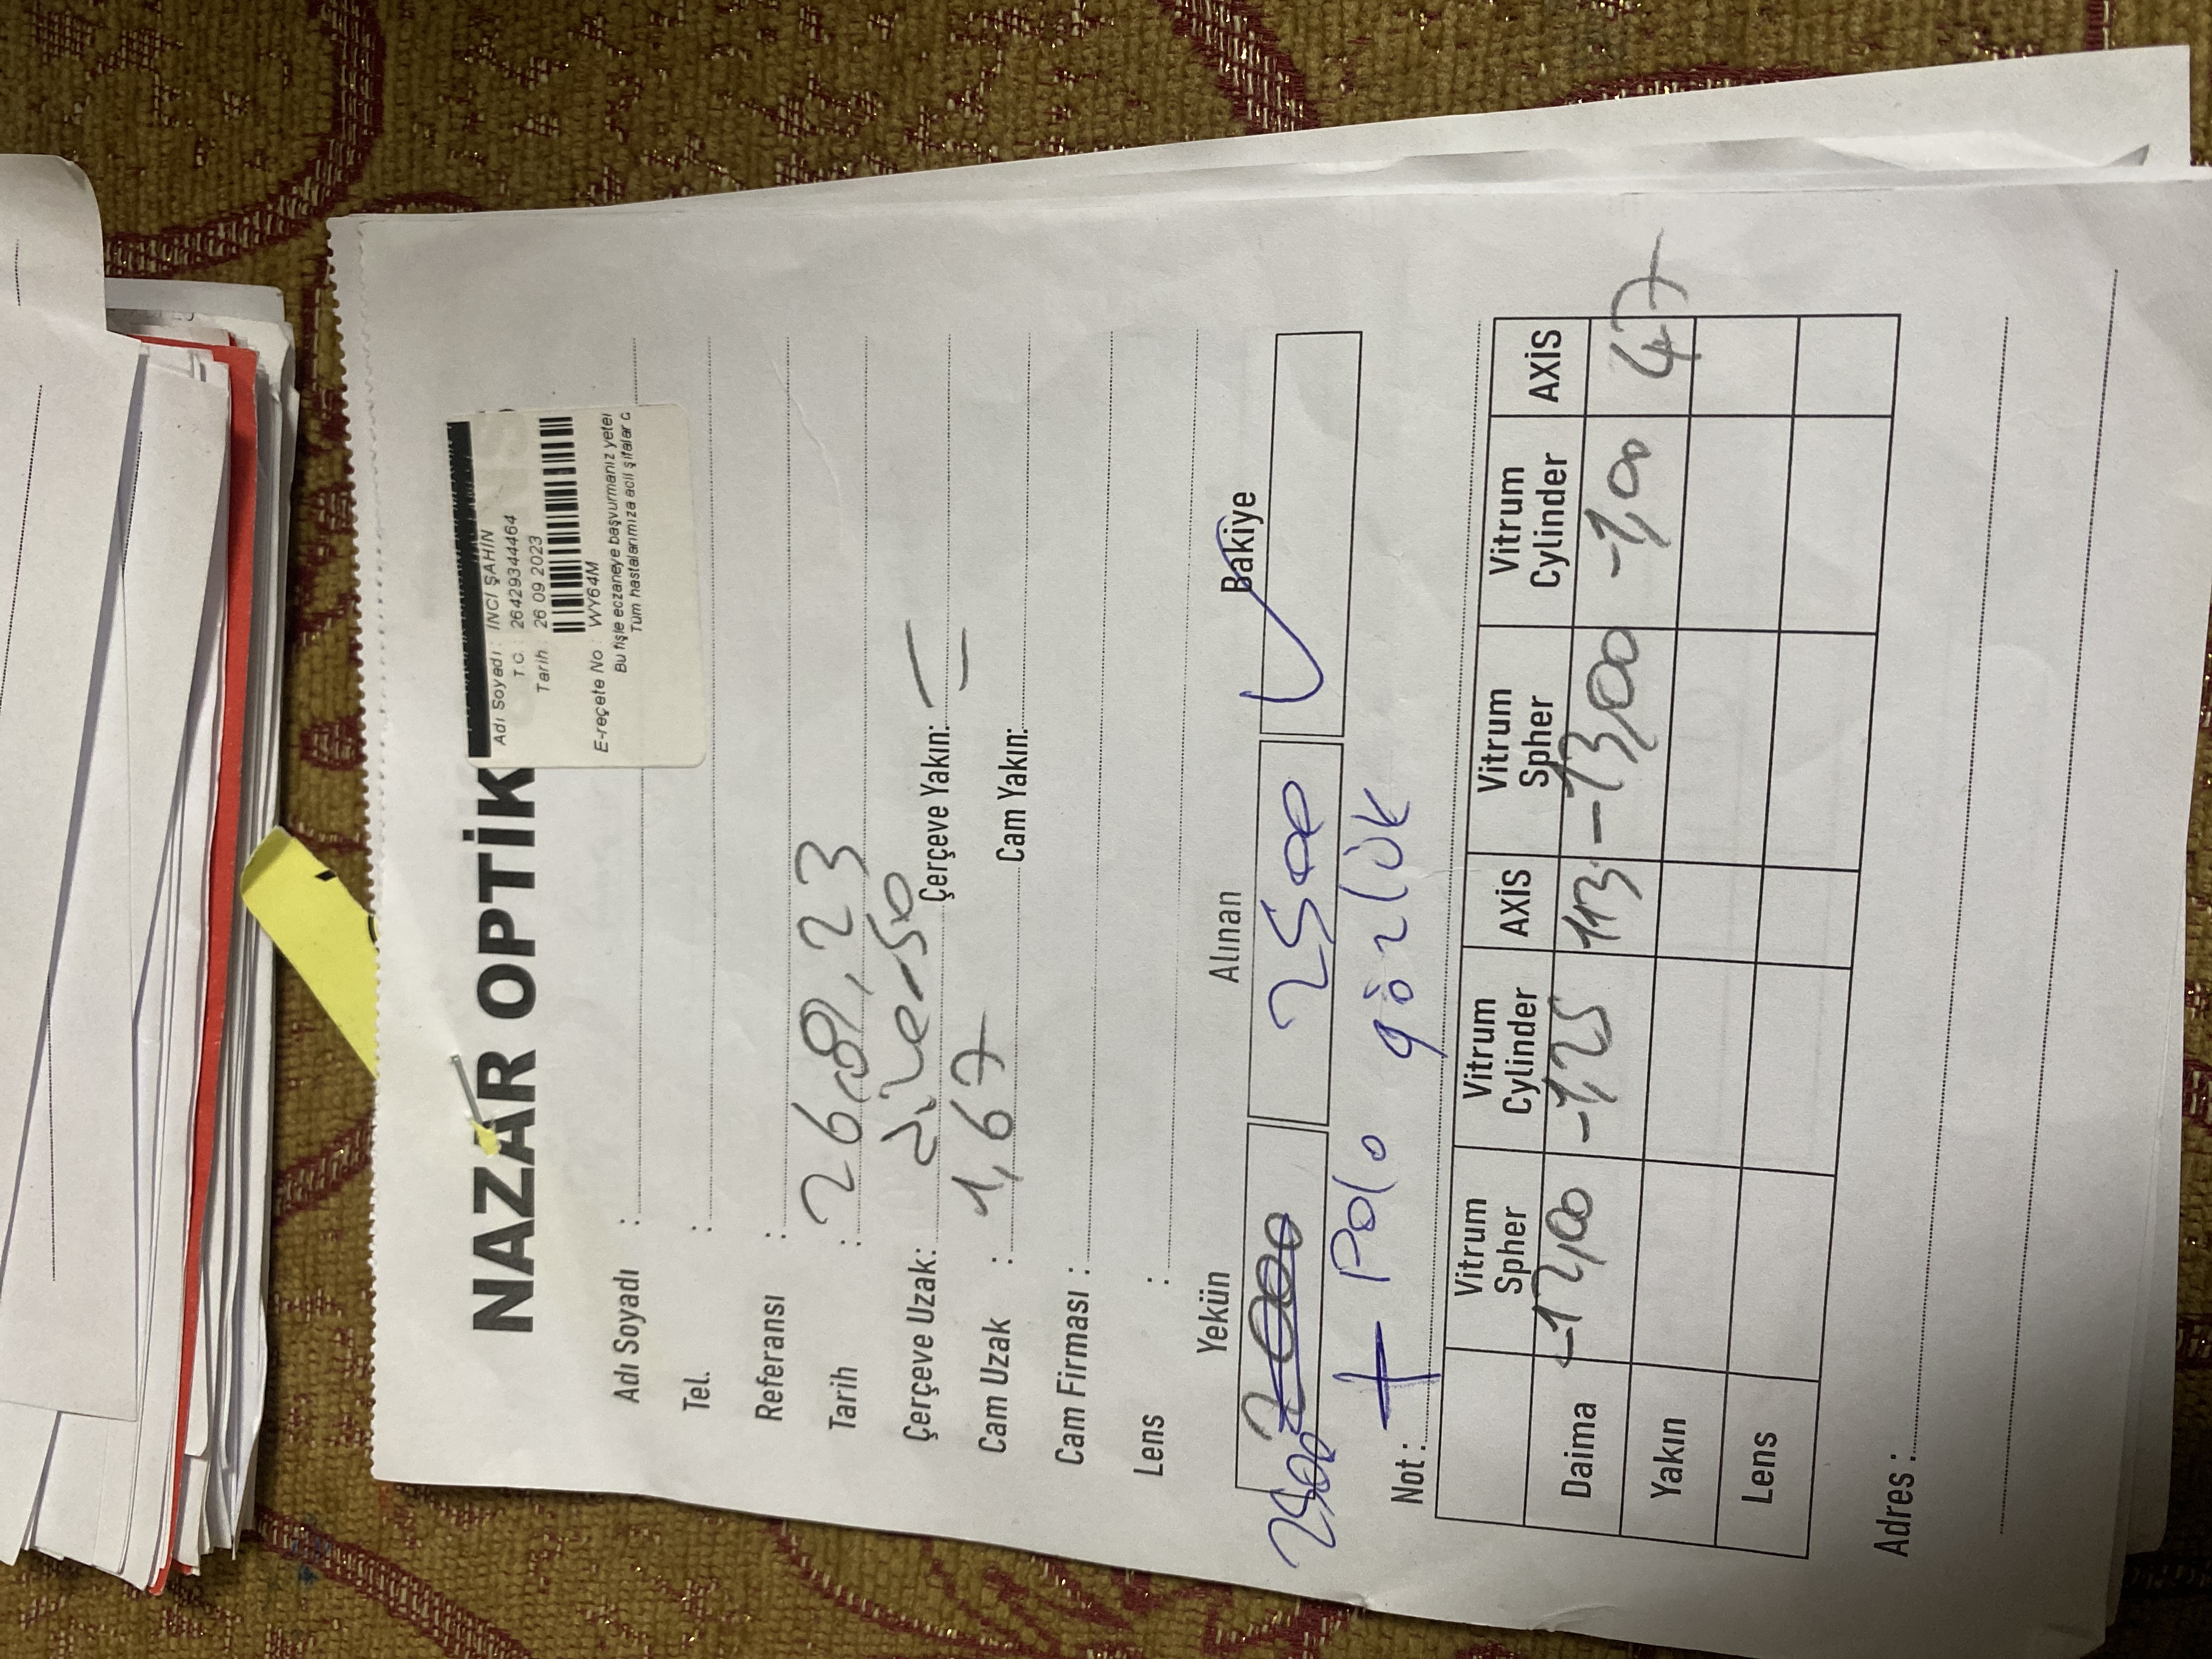 NAZAR OPTİK
Adı Soyadı : İNCİ ŞAHİN
T.C. 26429344464
Tarih : 26 09 2023
E-reçete No : WY64M
Bu fişle eczaneye başvurmanız yeter
Tüm hastalarımıza acil şifalar d
Adı Soyadı :
Tel. :
Referansı :
Tarih : 26, 23
Çerçeve Uzak: Çerçeve Yakın:
Cam Uzak : 1,67 Cam Yakın:
Cam Firması :
Lens :
Yekün Alınan Bakiye
2500 2000 2500
+ Polo gözlük
Not :
Vitrum Spher Vitrum Cylinder AXİS Vitrum Spher Vitrum Cylinder AXİS
Daima -12,00 -1,25 113 -13,00 -1,00 47
Yakın
Lens
Adres :